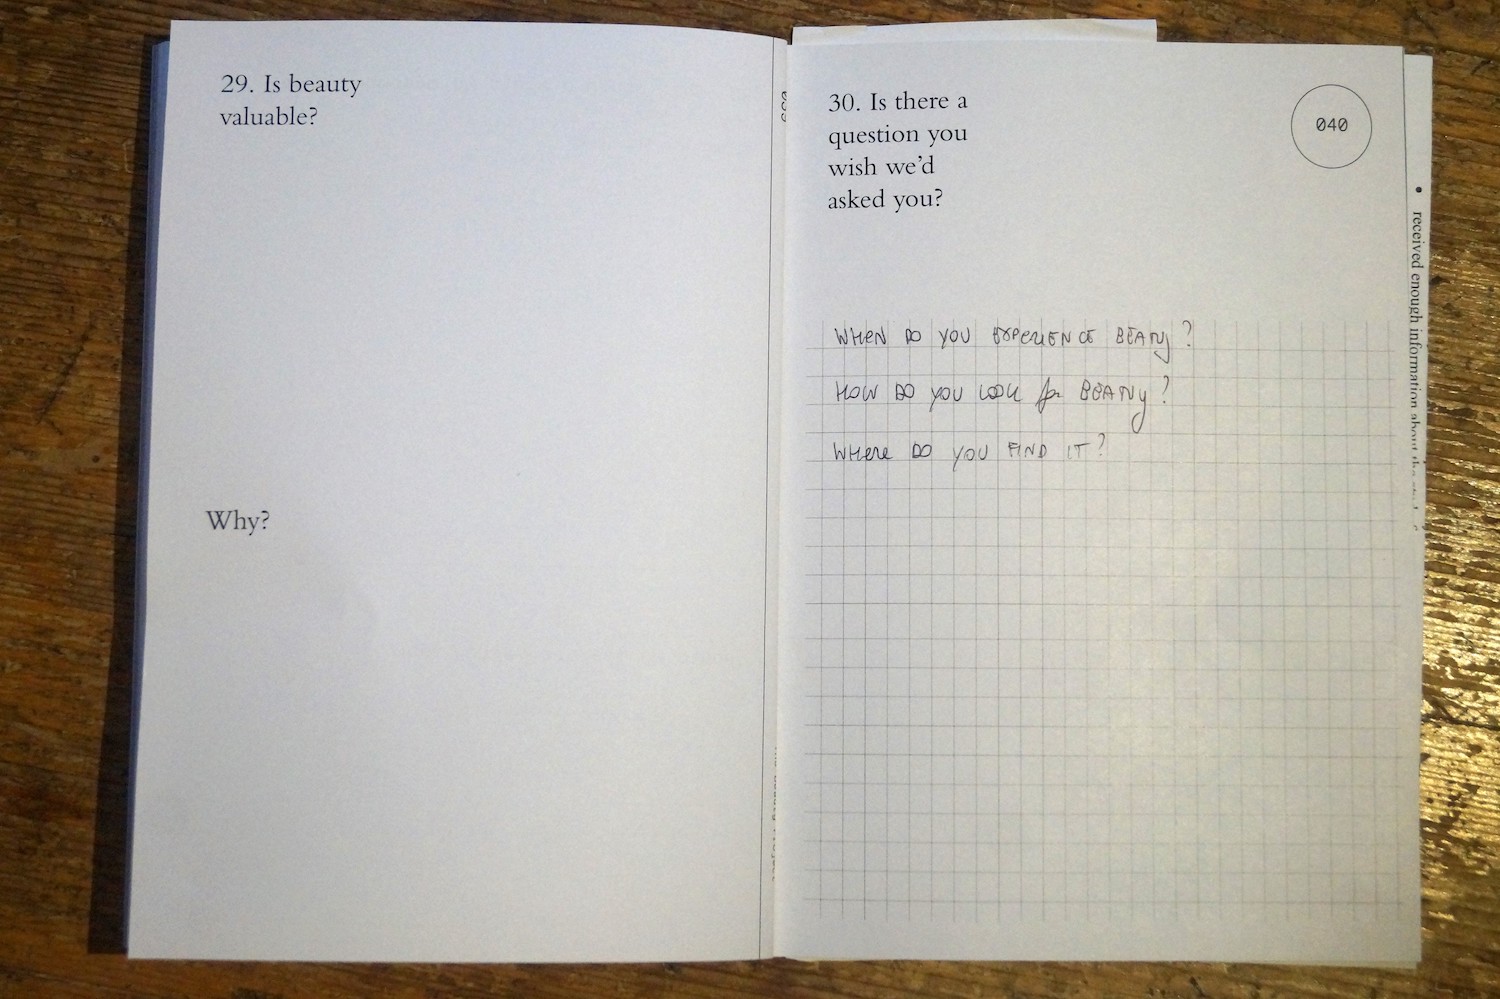 29. Is beauty
valuable?
Why?
039
30. Is there a
question you
wish we'd
asked you?
040
WHEN DO YOU EXPERIENCE BEATY?
HOW DO YOU LOOK for BEATY?
WHERE DO YOU FIND IT?
• received enough information about the